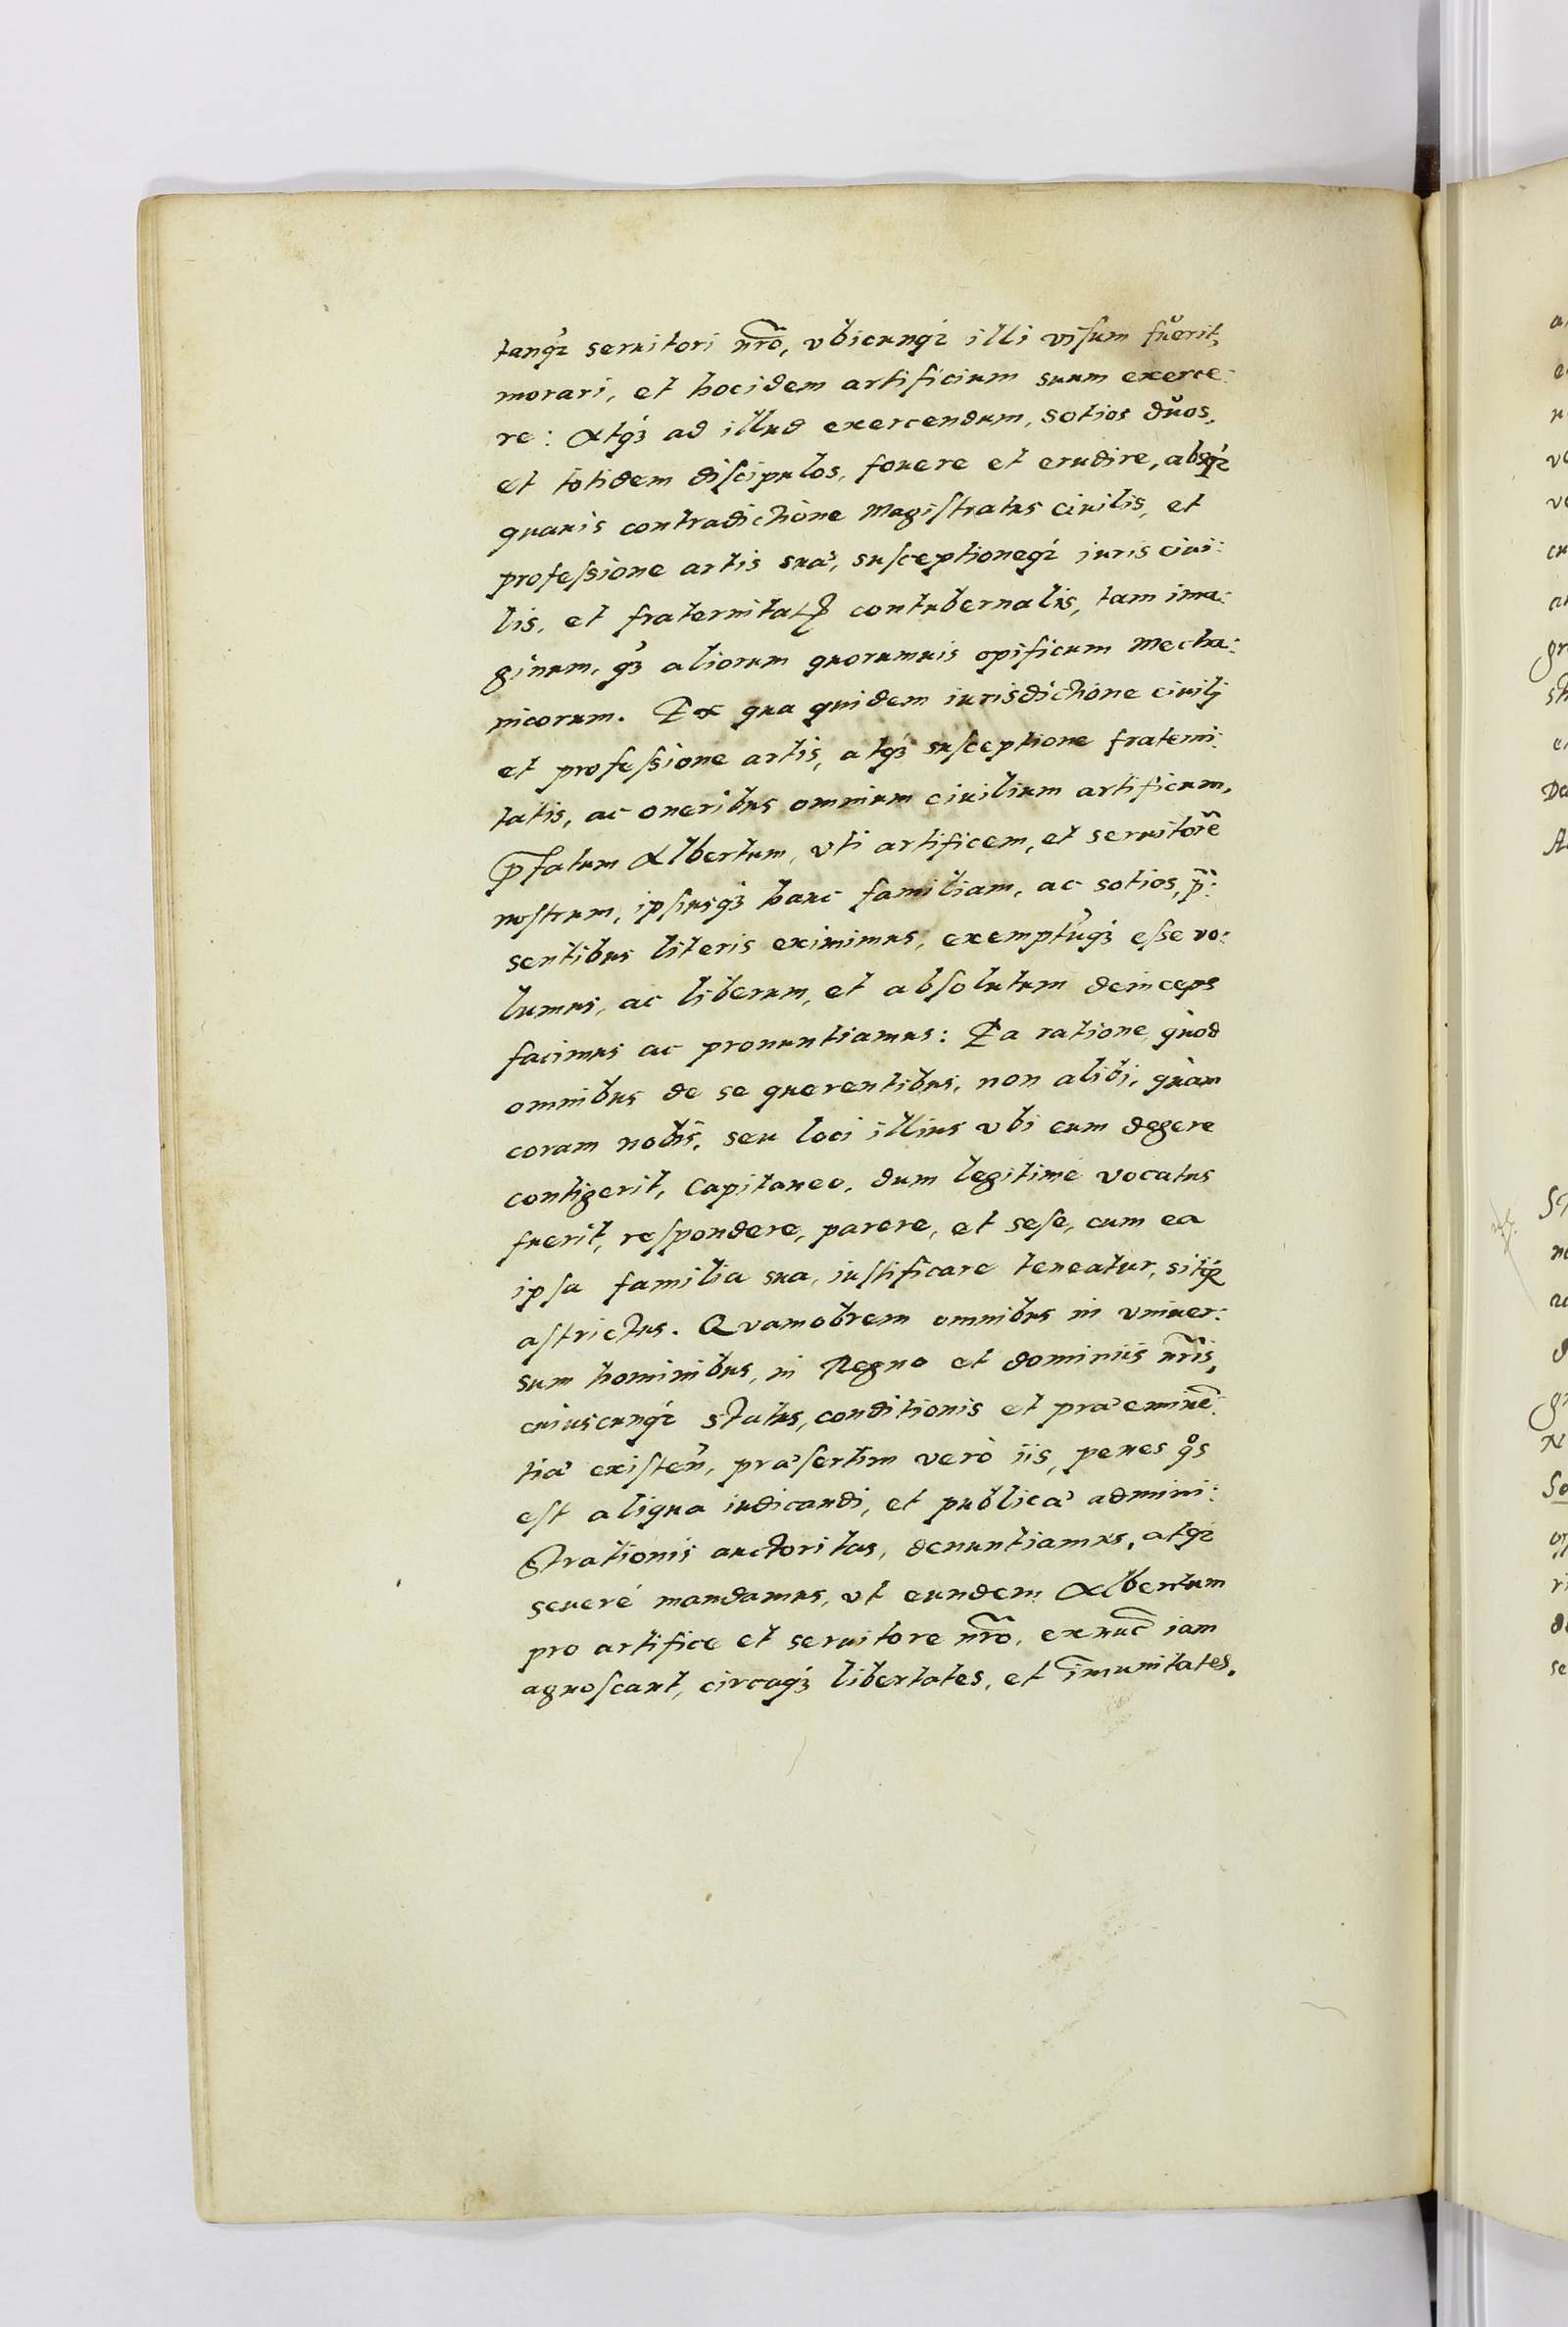 tanq́ȝ seruitori nr̃o, vbicunqȝ illi viſum fuerit,
morari, et hocidem artificium suum exerce:
re: Atqȝ ad illud exercendum, sotios duos,
et totidem diſcipulos, fouere et erudire, absqȝ
quauis contradictione Magiſtratus ciuilis, et
profeſsione artis suæ, suſceptioneqȝ iuris ciui:
lis, et fraternitatꝭ contubernalis, tam ima:
ginum, q́ȝ aliorum quorumuis opificum Mecha:
nicorum. Ex qua quidem iurisdictione ciuilj
et profeſsione artis, atqȝ suſceptione fraterni:
tatis, ac oneribus omnium ciuilium artificum,
p̃fatum Albertum, vti artificem, et seruitorẽ
noſtrum, ipſiusqȝ hanc familiam, ac sotios, p̃:
sentibus literis eximimus, exemptũqȝ eſse vo:
lumus, ac liberum, et abſolutum deinceps
facimus ac pronuntiamus: Ea ratione, quod
omnibus de se querentibus, non alibi, quàm
coram nobis, seu loci illius vbi eum degere
contigerit, Capitaneo, dum legitime vocatus
fuerit, reſpondere, parere, et seſe, cum ea
ipſa familia sua, iuſtificare teneatur, sitqȝ
aſtrictus. Quamobrem omnibus in vniuer:
sum hominibus, in Regno et dominiis nr̃is,
cuiuscunqȝ status, conditionis et præeminẽ:
tiæ exiſteñ, præſertim verò iis, penes qos
eſt aliqua iudicandi, et publicæ admini:
strationis auctoritas, denuntiamus, atqȝ
seueré mandamus, vt eundem Albertum
pro artifice et seruitore nr̃o, ex nuc̃ iam
agnoſcant, circaqȝ libertates, et im̃unitates,